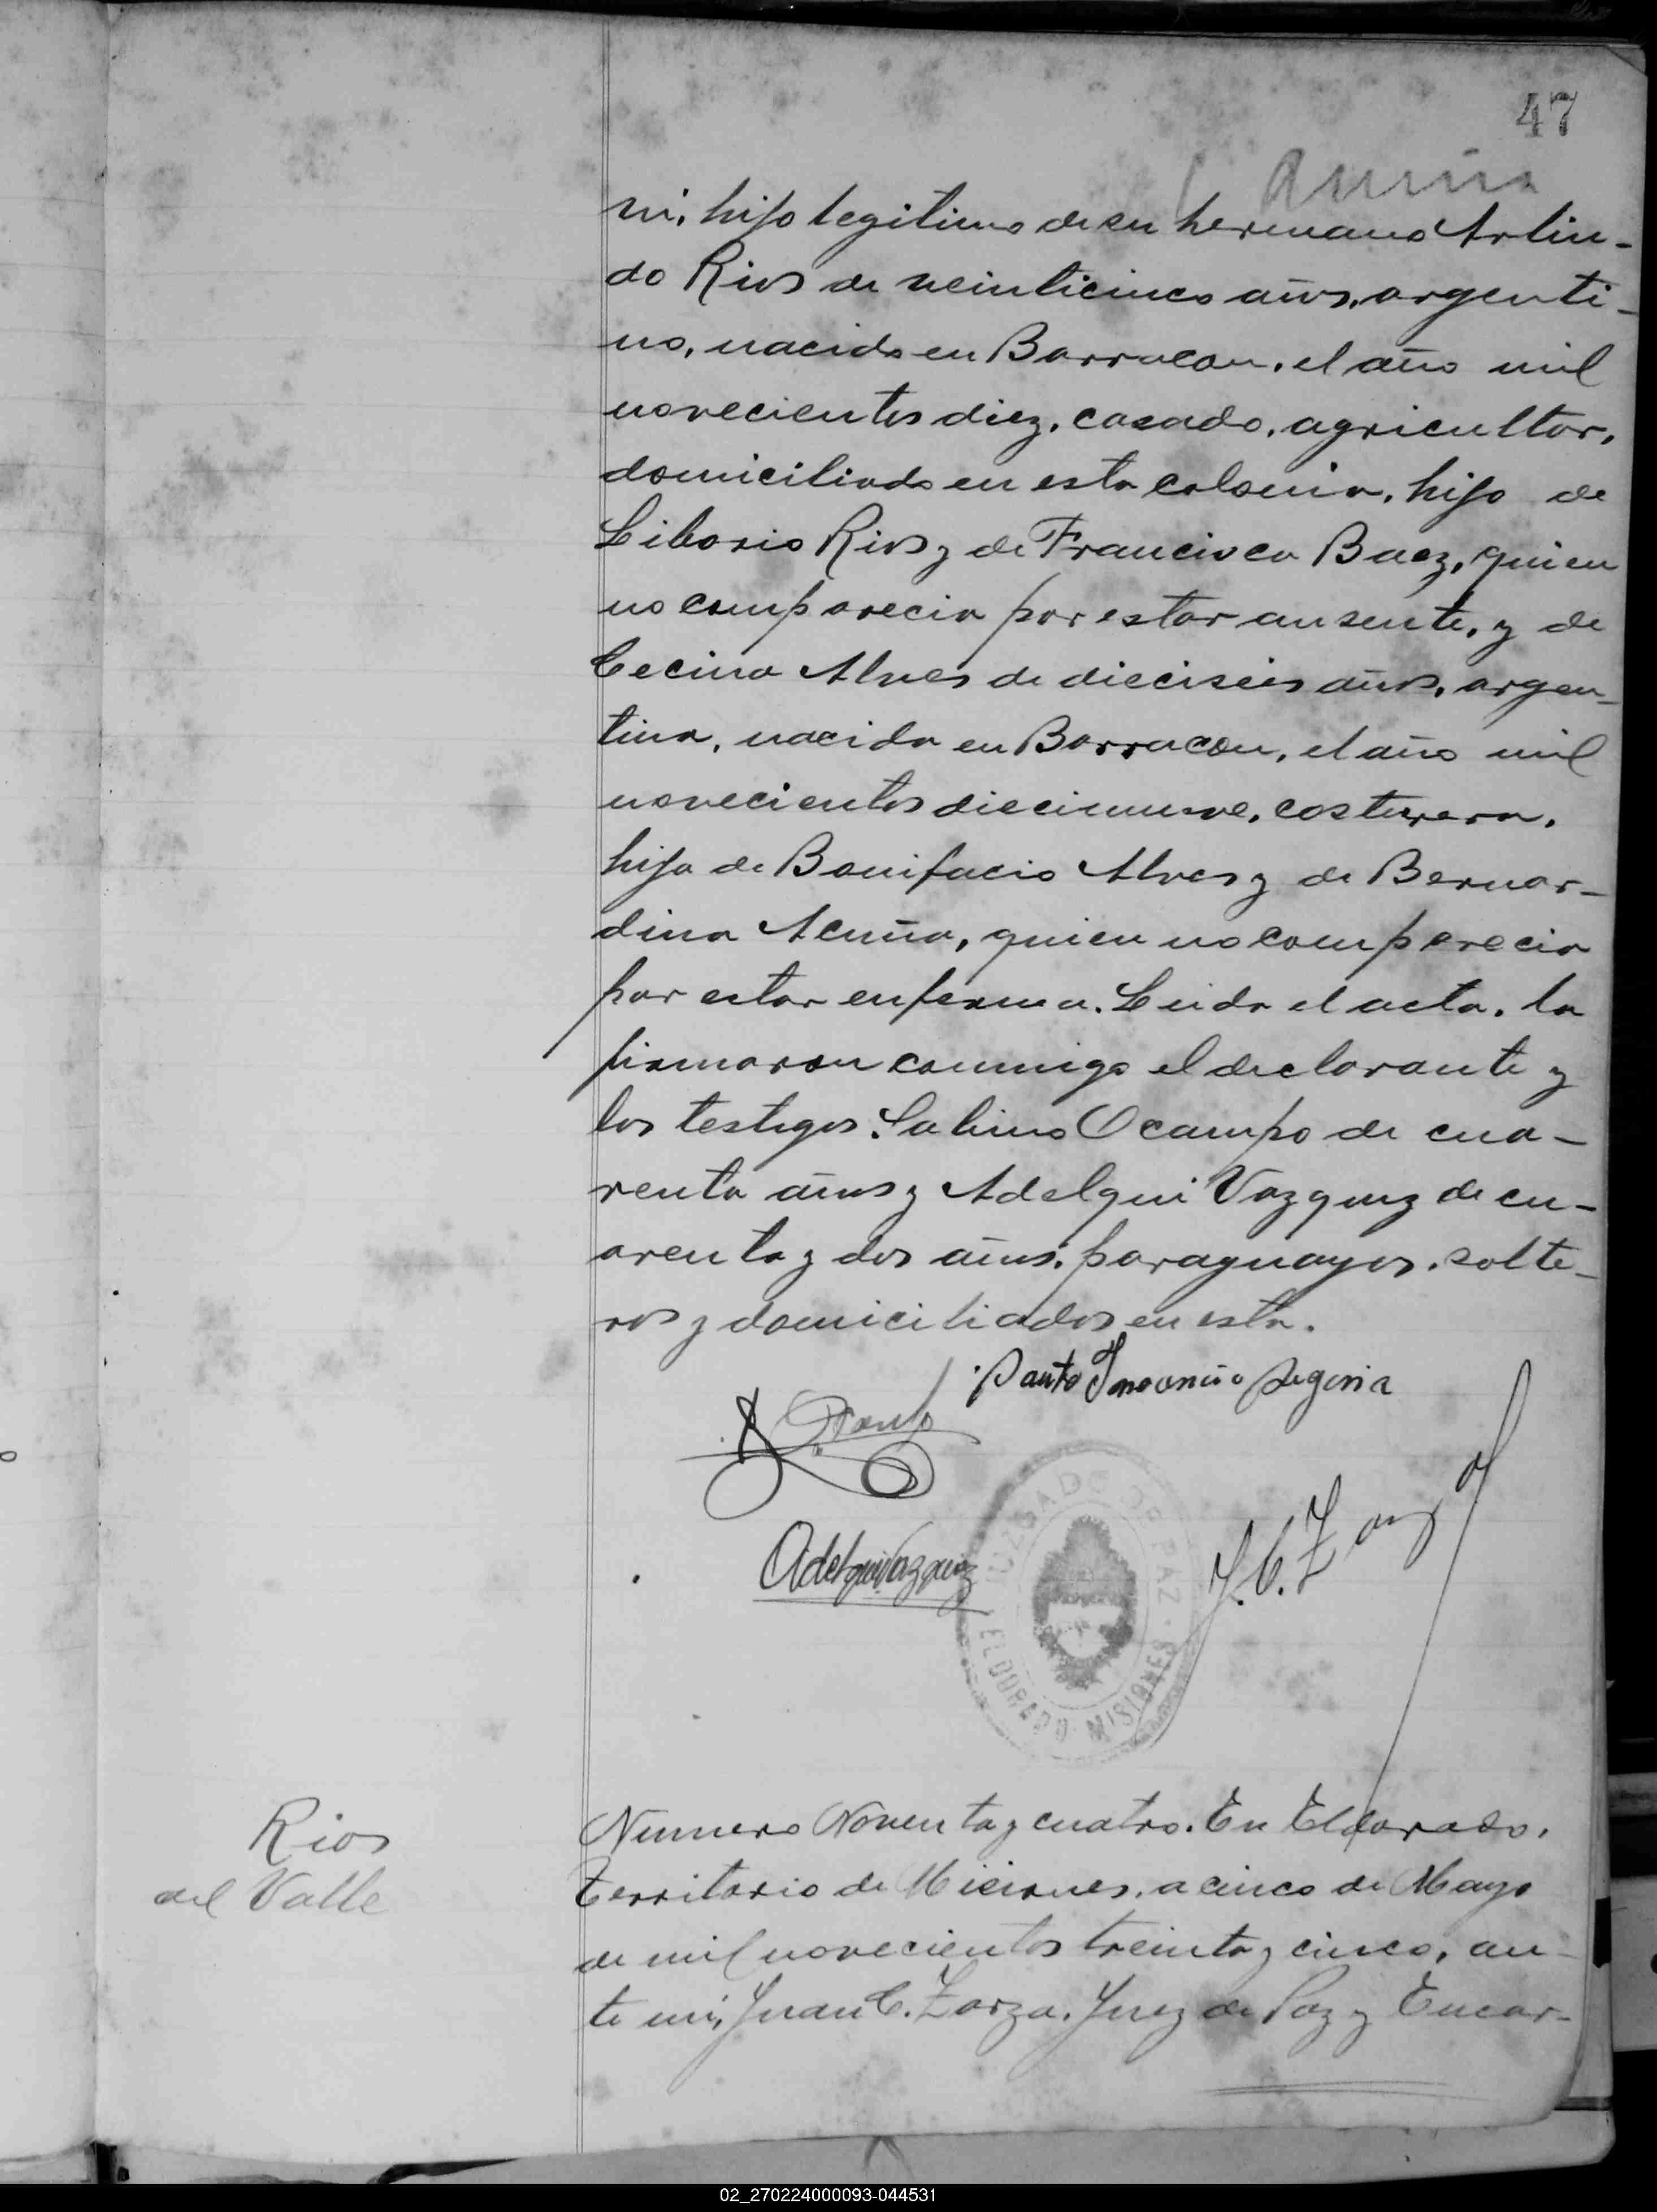 47
Acuña
ni, hijo legitimo de su hermano Arlin-
do Rios de veinticinco años, argenti-
no, nacido en Barracon, el año mil
novecientos diez, casado, agricultor,
domiciliado en esta colonia, hijo de
Liborio Rios y de Francisca Baez, quien
no comparecia por estar ausente, y de
Cecina Alves de dieciseis años, argen-
tina, nacida en Barracon, el año mil
novecientos diecinueve, costurera,
hija de Bonifacio Alves y de Bernar-
dina Acuña, quien no comparecia
por estar enferma. Leida el acta, la
firmaron conmigo el declarante y
los testigos: Sabino Ocampo de cua-
renta años y Adelqui Vazquez de cu-
arenta y dos años, paraguayos, solte-
ros y domiciliados en esta.
Santo Segovia
Adelqui Vazquez
J. C. Zarza
JUZGADO DE PAZ
ELDORADO MISIONES
Rios
del Valle
Numero Noventa y cuatro. En Eldorado,
Territorio de Misiones, a cinco de Mayo
de mil novecientos treinta y cinco, an-
te mi, Juan C. Zarza, Juez de Paz y Encar-
02_270224000093-044531